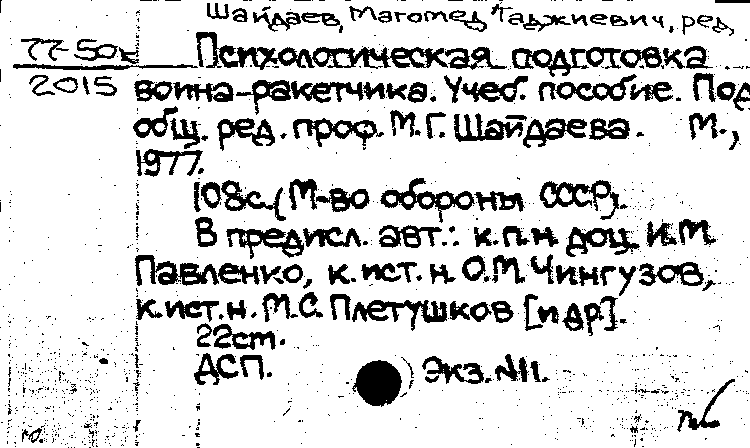 Шайдаев, Магомед Таджиевич, ред.
77-50к
Психологическая подготовка
2015
воина-ракетчика. Учеб. пособие. Под
общ. ред. проф. М.Г. Шайдаева. М.,
1977.
108с. (М-во обороны СССР).
В предисл. авт.: к.п.н. доц. И.М.
Павленко, к.ист.н. О.М. Чингузов,
к.ист.н. М.С. Плетушков [и др.].
22cm.
ДСП. Экз. №11.